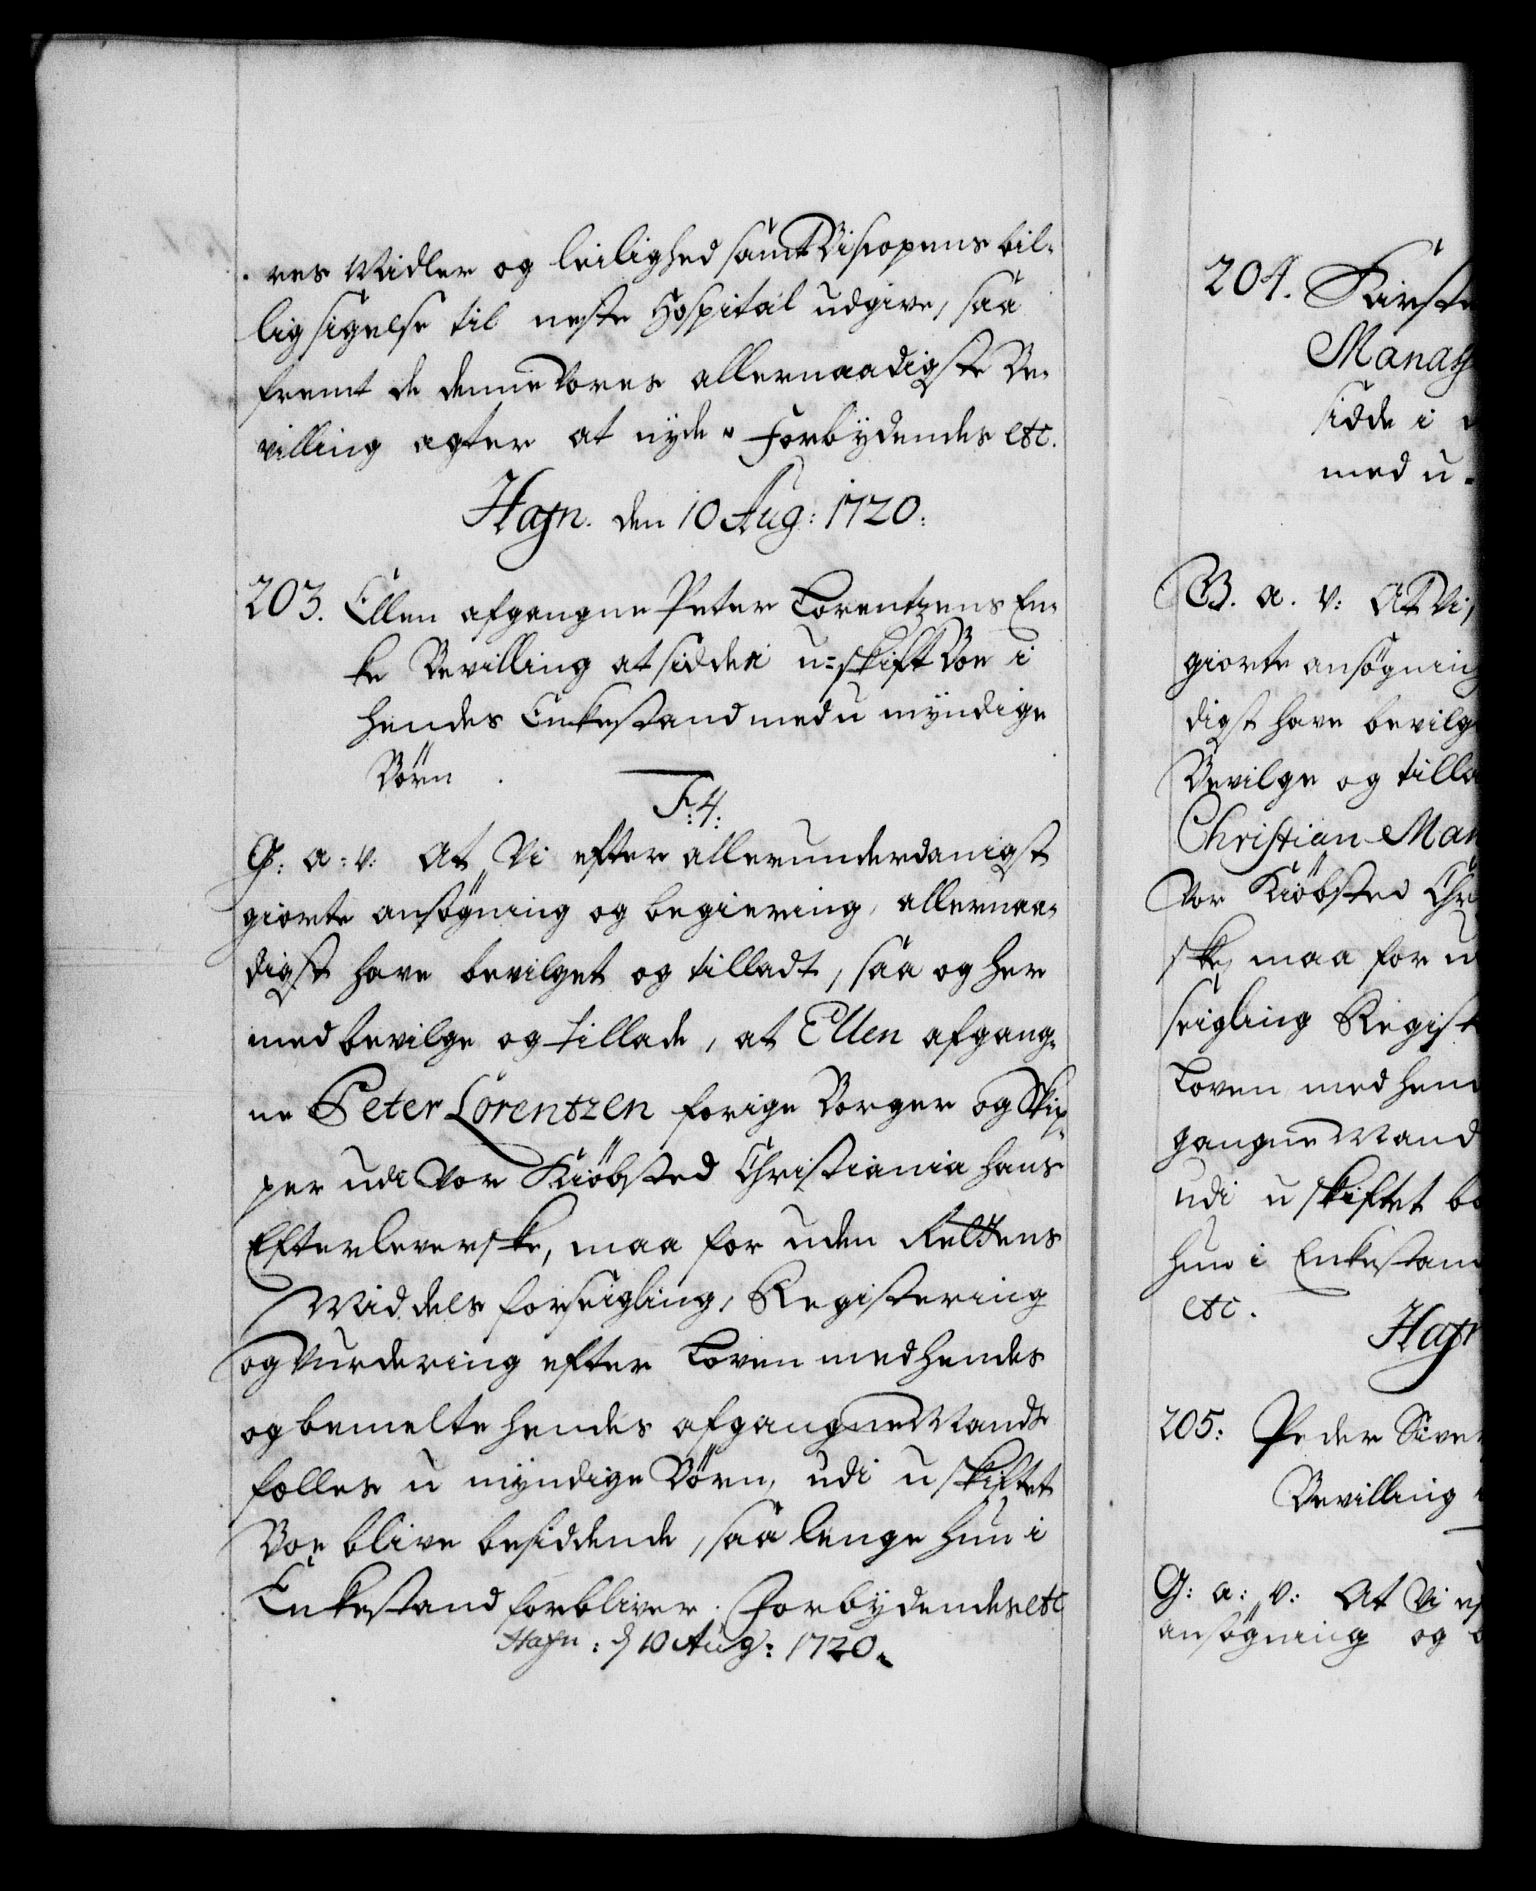 res Midler og leilighed samt Biscopens bil-
lig sigelse til neste Hospital udgive, saa
fremt de denne Vores allernaadigste Be-
villing agter at nyde. Forbydendes etc.
Hafn. den 10 Aug: 1720.
203. Ellen afgangne Peter Lorentzens En-
ke Bevilling at sidde i u-skift Boe i
hendes Enkestand med u myndige
Börn
F. 4.
G: a: v: At Vi efter allerunderdanigst
giorte ansögning og begiering, allernaa-
digst have bevilget og tilladt, saa og her
med bevilge og tillade, at Ellen afgang-
ne Peter Lorentzen forige Borger og Skip-
per udi Vor Kiöbsted Christiania hans
Efterleverske, maa for uden Rettens
Middels forseigling, Registering
og Vurdering efter Loven med hendes
og bemelte hendes afgangne Mands
felles u myndige Börn, udi u skiftet
Boe blive besiddende, saa lenge hun i
Enkestand forbliver. Forbydendes etc
Hafn: d 10 Aug: 1720.
204. Kirste
Manass
sidde i
med u-
G. a. v: At Vi,
giorte ansögning
digst have bevilg
Bevilge og tilla
Christian Man
Vor Kiöbsted Chr
ske, maa for u
seigling Regist
Loven med hen
gangne Mand
udi u skiftet bo
hun i Enkestan
etc.
Hafn
205: Peder Siver
Bevilling
G: a: v: At Vi ef
ansögning og b